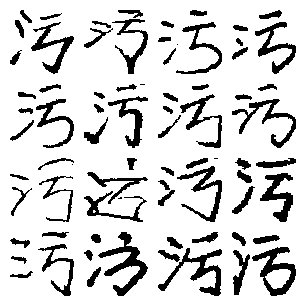 污污污污
污污污污
污污污
污污污污